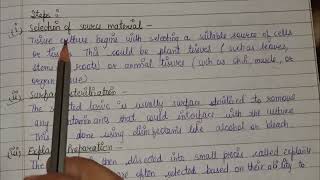 Steps :
(i) Selection of source material -
Tissue culture begins with selecting a suitable source of cells
or tissues. This could be plant tissues (such as leaves,
stems roots) or animal tissues (such as skin, muscle, or
organ
(ii) Surface Sterilization
The selected tissue is usually surface sterilized to remove
any contaminants that could interfere with the culture
This done using disinfectants like alcohol or bleach
(iii) Preparation -
The then dissected into small pieces, called explants
are often selected based on their ability to